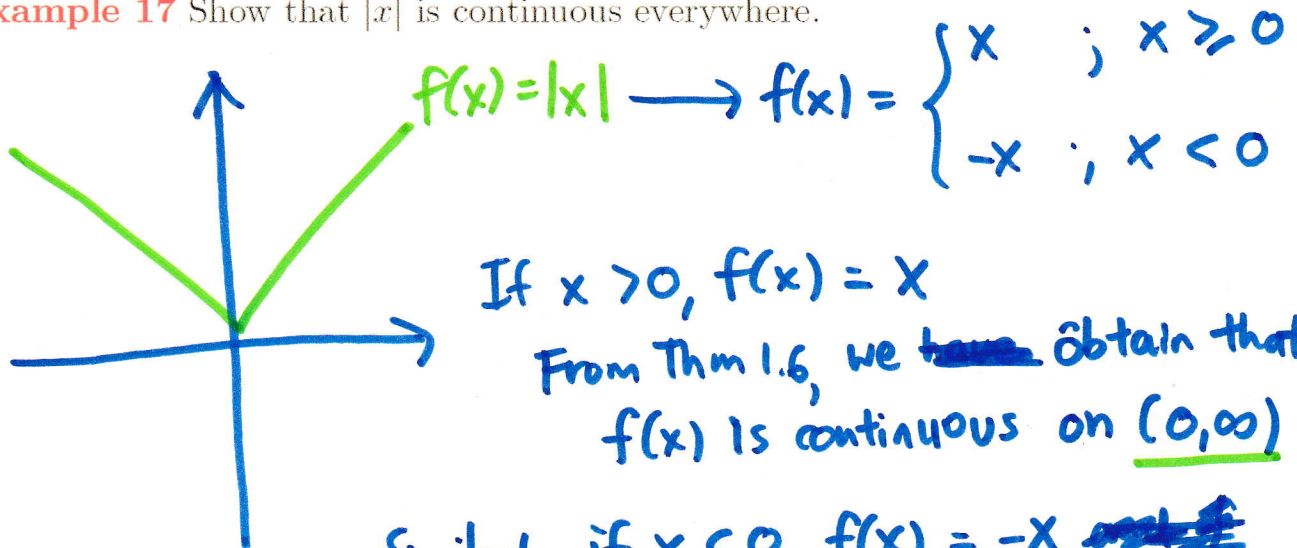 xample 17 Show that |x| is continuous everywhere.
f(x)=|x| → f(x) = { x ; x ⩾ 0
-x ; x < 0
If x >0, f(x) = x
From Thm 1.6, we obtain that
f(x) is continuous on (0,∞)
if x < 0, f(x) = -x